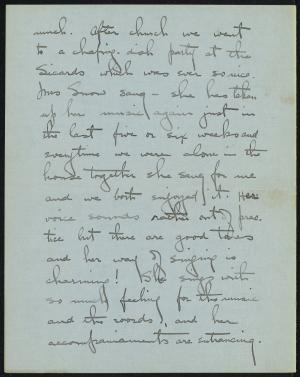 much. After church we went
to a chafing-dish party at the
Sicards which was ever so nice.
Mrs Snow sang - she has taken
up her music again just in
the last five or six weeks and
everytime we were alone in the
house together she sang for me
and we both enjoyed it. Her
voice sounds rather out of prac
tice but there are good tones
and her way of singing is
charming! She sings with
so much feeling for the music
and the words, and her
accompaniments are entrancing.